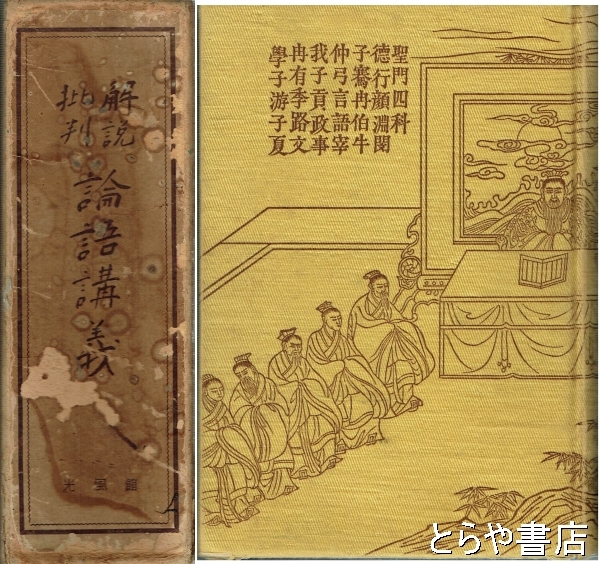 解説
批判
論語講義
光風館
聖門四科
德行顏淵閔
子騫冉伯牛
仲弓言語宰
我子貢政事
冉有季路文
學子游子夏
とらや書店